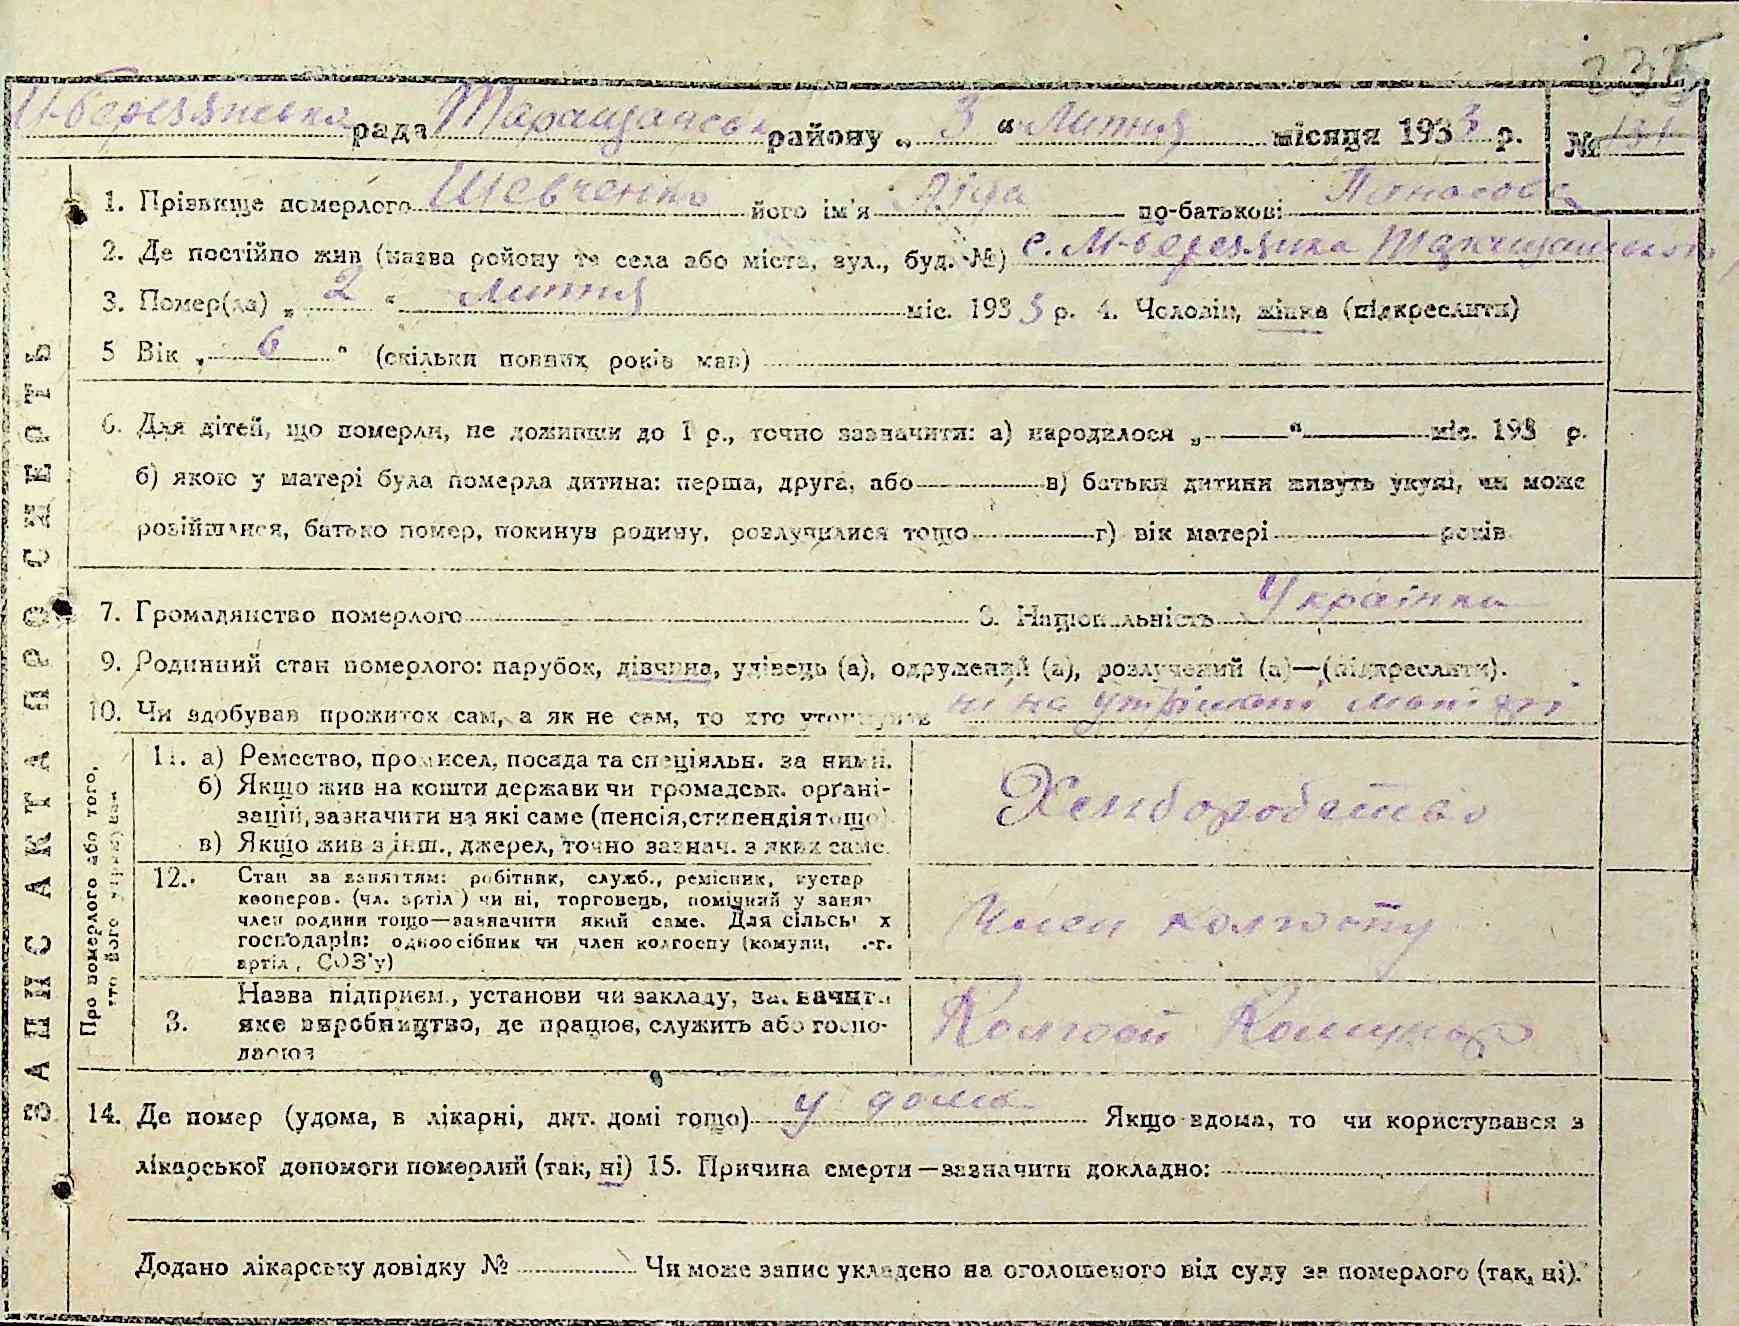 335
М-березянська рада Таращанськ району „ 3 “ Липня місяця 1933 р. № 131
1. Прізвище померлого Шевченко його ім'я Ліда по-батькові Панасовс
2. Де постійно жив (назва району та села або міста, вул., буд. №) с. М-березянка Таращанського
3. Помер(ла) „ 2 “ Липня міс. 1933 р. 4. Чоловік, жінка (підкреслити)
5 Вік „ 6 “ (скільки повних років мав)
6. Для дітей, що померли, не доживши до 1 р., точно зазначити: а) народилося „ “ міс. 193 р.
б) якою у матері була померла дитина: перша, друга, або в) батьки дитини живуть укупі, чи може
розійшлися, батько помер, покинув родину, розлучилися тощо г) вік матері років
7. Громадянство померлого 8. Національність Українка
9. Родинний стан померлого: парубок, дівчина, удівець (а), одружений (а), розлучений (а)—(підкреслити).
10. Чи здобував прожиток сам, а як не сам, то хто утримував ні на
11. а) Ремество, промисел, посада та спеціяльн. за ними.
б) Якщо жив на кошти держави чи громадськ. орґані-
зацій, зазначити на які саме (пенсія, стипендія тощо)
в) Якщо жив з інш., джерел, точно зазнач. з яких саме.
Хенборобство
12. Стан за заняттям: робітник, служб., ремісник, кустар
кооперов. (чл. артіл) чи ні, торговець, помічний у заня-
член родини тощо—зазначити який саме. Для сільськ х
господарів: одноосібник чи член колгоспу (комуни, -г.
артіл, СОЗ'у)
Член колгоспу
3. Назва підприєм., установи чи закладу, зазначити
яке виробництво, де працює, служить або госпо-
дарює
Колгосп Комунар
14. Де помер (удома, в лікарні, дит. домі тощо) у дома Якщо вдома, то чи користувався з
лікарської допомоги померлий (так, ні) 15. Причина смерти—зазначити докладно:
Додано лікарську довідку № Чи може запис укладено на оголошеного від суду за померлого (так, ні).
ЗАПИС АКТА ПРО СМЕРТЬ
Про померлого або того,
хто його утримував